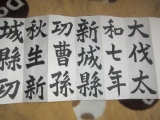 大伐太
和七年
新城縣
功曹孫
秋生新
城縣功